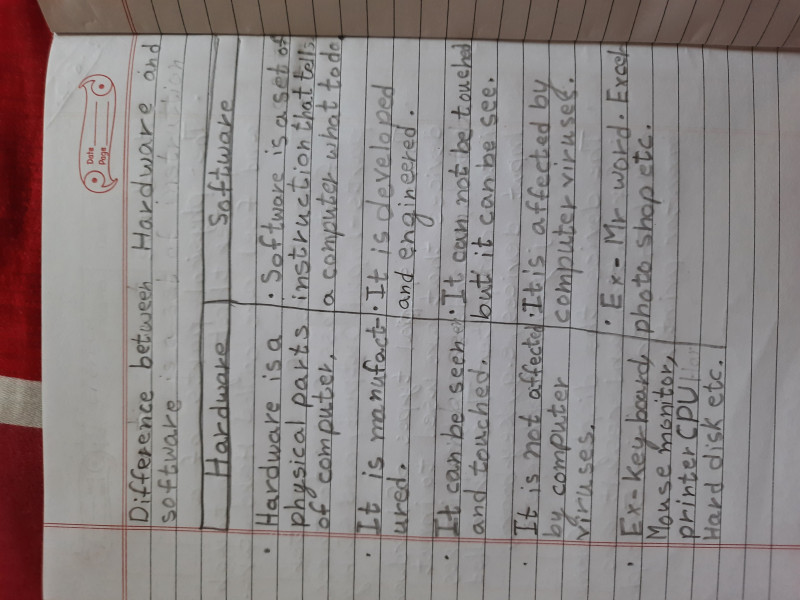 Date
Page
Difference between Hardware and
software
Hardware
Software
• Hardware is a
physical parts
of computer,
• Software is a set of
instruction that tells
a computer what to do.
• It is manufact-
ured.
• It is developed
and engineered.
• It can be seen
and touched.
• It can not be touched
but it can be see.
• It is not affected
by computer
viruses.
• It is affected by
computer viruses.
• Ex- Key board,
Mouse monitor,
printer CPU
Hard disk etc.
• Ex- Mr word. Excel
photo shop etc.